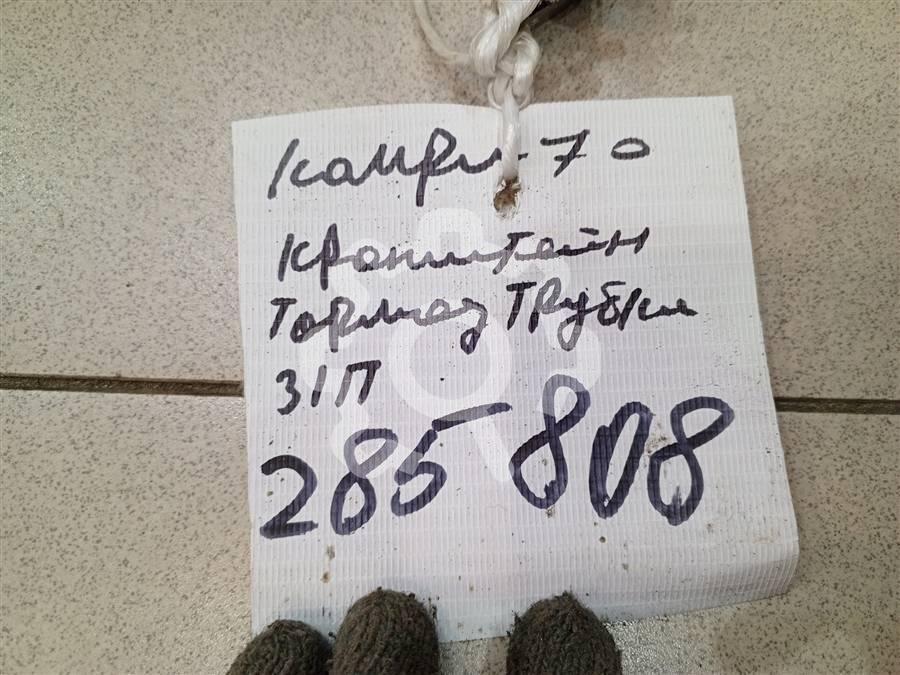 Камри-70
Кронштейн
Тормоз Трубки
З/П
285808